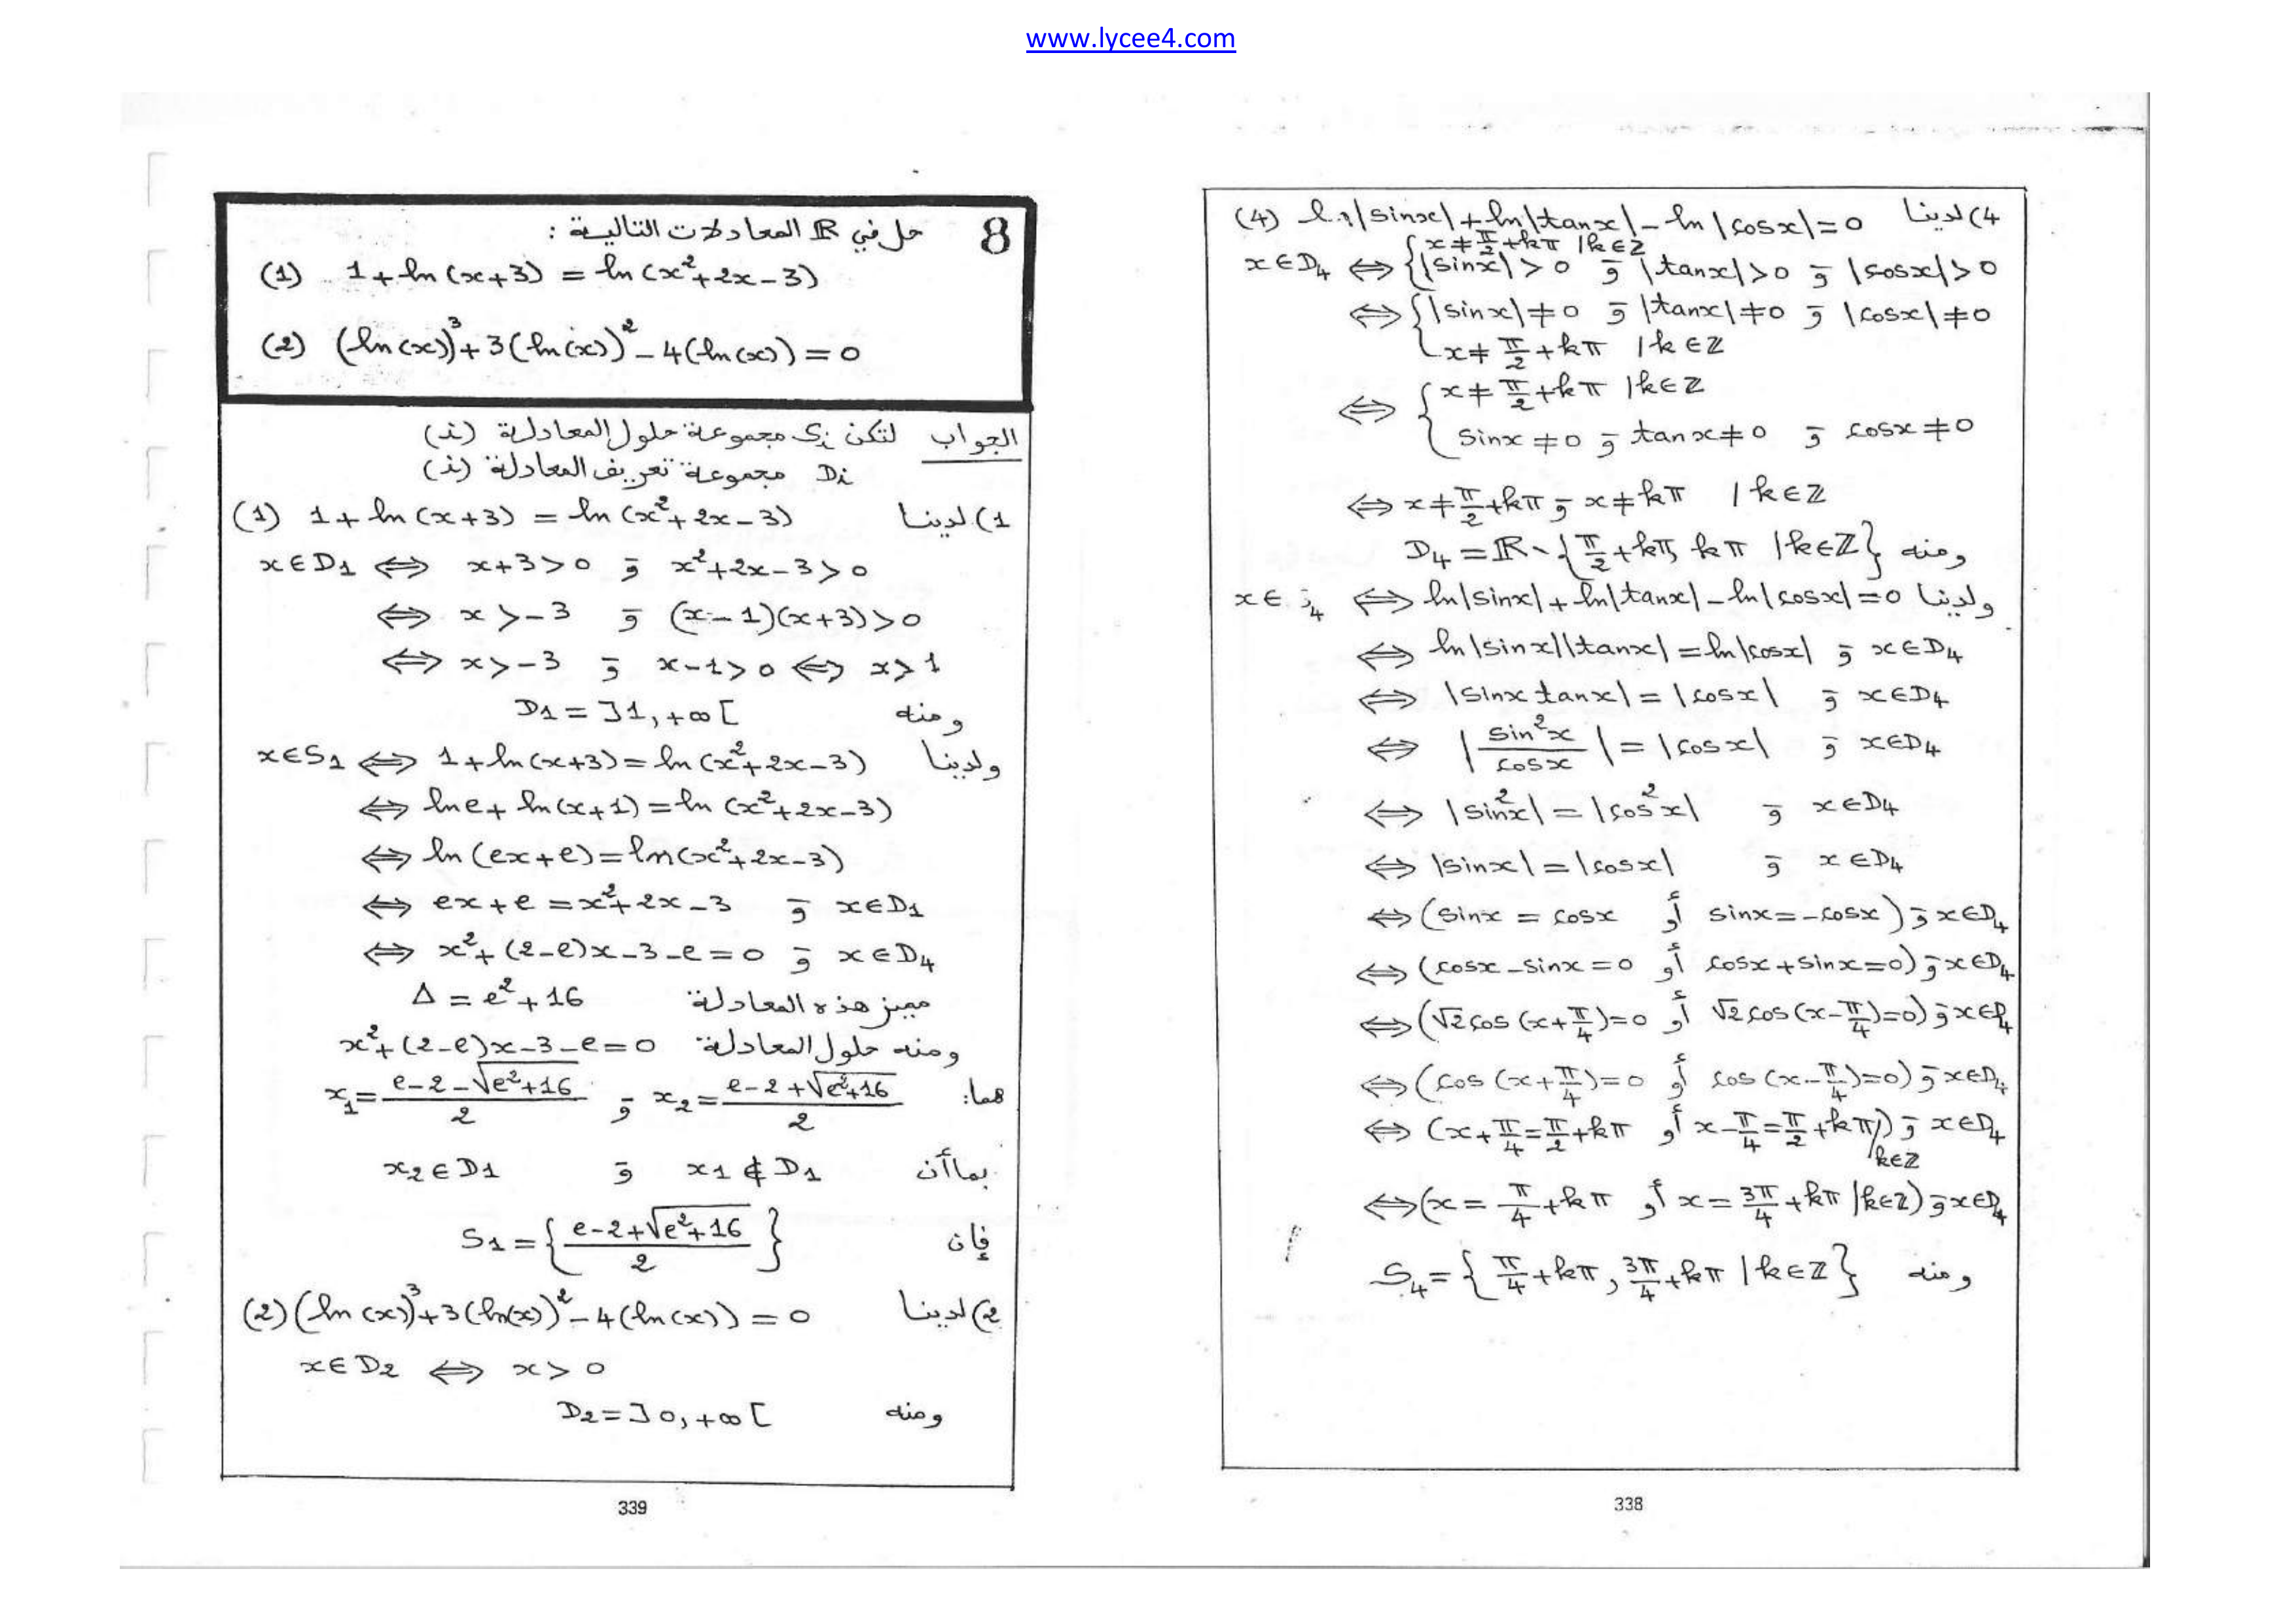 www.lycee4.com
4) لدينا (4) ln|sinx|+ln|tanx|-ln|cosx|=0
{x≠π/2+kπ /k∈ℤ
x∈D₄ ⟺ {|sinx|>0 وَ |tanx|>0 وَ |cosx|>0
⟺ {|sinx|≠0 وَ |tanx|≠0 وَ |cosx|≠0
x≠π/2+kπ /k∈ℤ
⟺ {x≠π/2+kπ /k∈ℤ
sinx≠0 وَ tanx≠0 وَ cosx≠0
⟺ x≠π/2+kπ وَ x≠kπ /k∈ℤ
ومنه D₄=ℝ-{π/2+kπ, kπ /k∈ℤ}
ولدينا x∈ ₄ ⟺ ln|sinx|+ln|tanx|-ln|cosx|=0
⟺ ln|sinx||tanx|=ln|cosx| وَ x∈D₄
⟺ |sinx tanx|=|cosx| وَ x∈D₄
⟺ |sin²x/cosx|=|cosx| وَ x∈D₄
⟺ |sin²x|=|cos²x| وَ x∈D₄
⟺ |sinx|=|cosx| وَ x∈D₄
⟺ (sinx = cosx أو sinx=-cosx) وَ x∈D₄
⟺ (cosx-sinx=0 أو cosx+sinx=0) وَ x∈D₄
⟺ (√2cos(x+π/4)=0 أو √2cos(x-π/4)=0) وَ x∈D₄
⟺ (cos(x+π/4)=0 أو cos(x-π/4)=0) وَ x∈D₄
⟺ (x+π/4=π/2+kπ أو x-π/4=π/2+kπ/) وَ x∈D₄
k∈ℤ
⟺ (x=π/4+kπ أو x=3π/4+kπ /k∈ℤ) وَ x∈D₄
ومنه S₄={π/4+kπ, 3π/4+kπ /k∈ℤ}
338
8 حل في ℝ المعادلات التالية :
(1) 1+ln(x+3) = ln(x²+2x-3)
(2) (ln(x))³+3(ln(x))²-4(ln(x))=0
الجواب لتكن Sᵢ مجموعة حلول المعادلة (i)
Dᵢ مجموعة تعريف المعادلة (i)
1) لدينا (1) 1+ln(x+3) = ln(x²+2x-3)
x∈D₁ ⟺ x+3>0 وَ x²+2x-3>0
⟺ x>-3 وَ (x-1)(x+3)>0
⟺ x>-3 وَ x-1>0 ⟺ x>1
ومنه D₁=]1,+∞[
ولدينا x∈S₁ ⟺ 1+ln(x+3)=ln(x²+2x-3)
⟺ lne+ln(x+1)=ln(x²+2x-3)
⟺ ln(ex+e)=ln(x²+2x-3)
⟺ ex+e=x²+2x-3 وَ x∈D₁
⟺ x²+(2-e)x-3-e=0 وَ x∈D₄
مميز هذه المعادلة Δ=e²+16
ومنه حلول المعادلة x²+(2-e)x-3-e=0
هما: x₁=(e-2-√(e²+16))/2 وَ x₂=(e-2+√(e²+16))/2
بما أن x₁∉D₁ وَ x₂∈D₁
فإن S₁={(e-2+√(e²+16))/2}
2) لدينا (2) (ln(x))³+3(ln(x))²-4(ln(x))=0
x∈D₂ ⟺ x>0
ومنه D₂=]0,+∞[
339